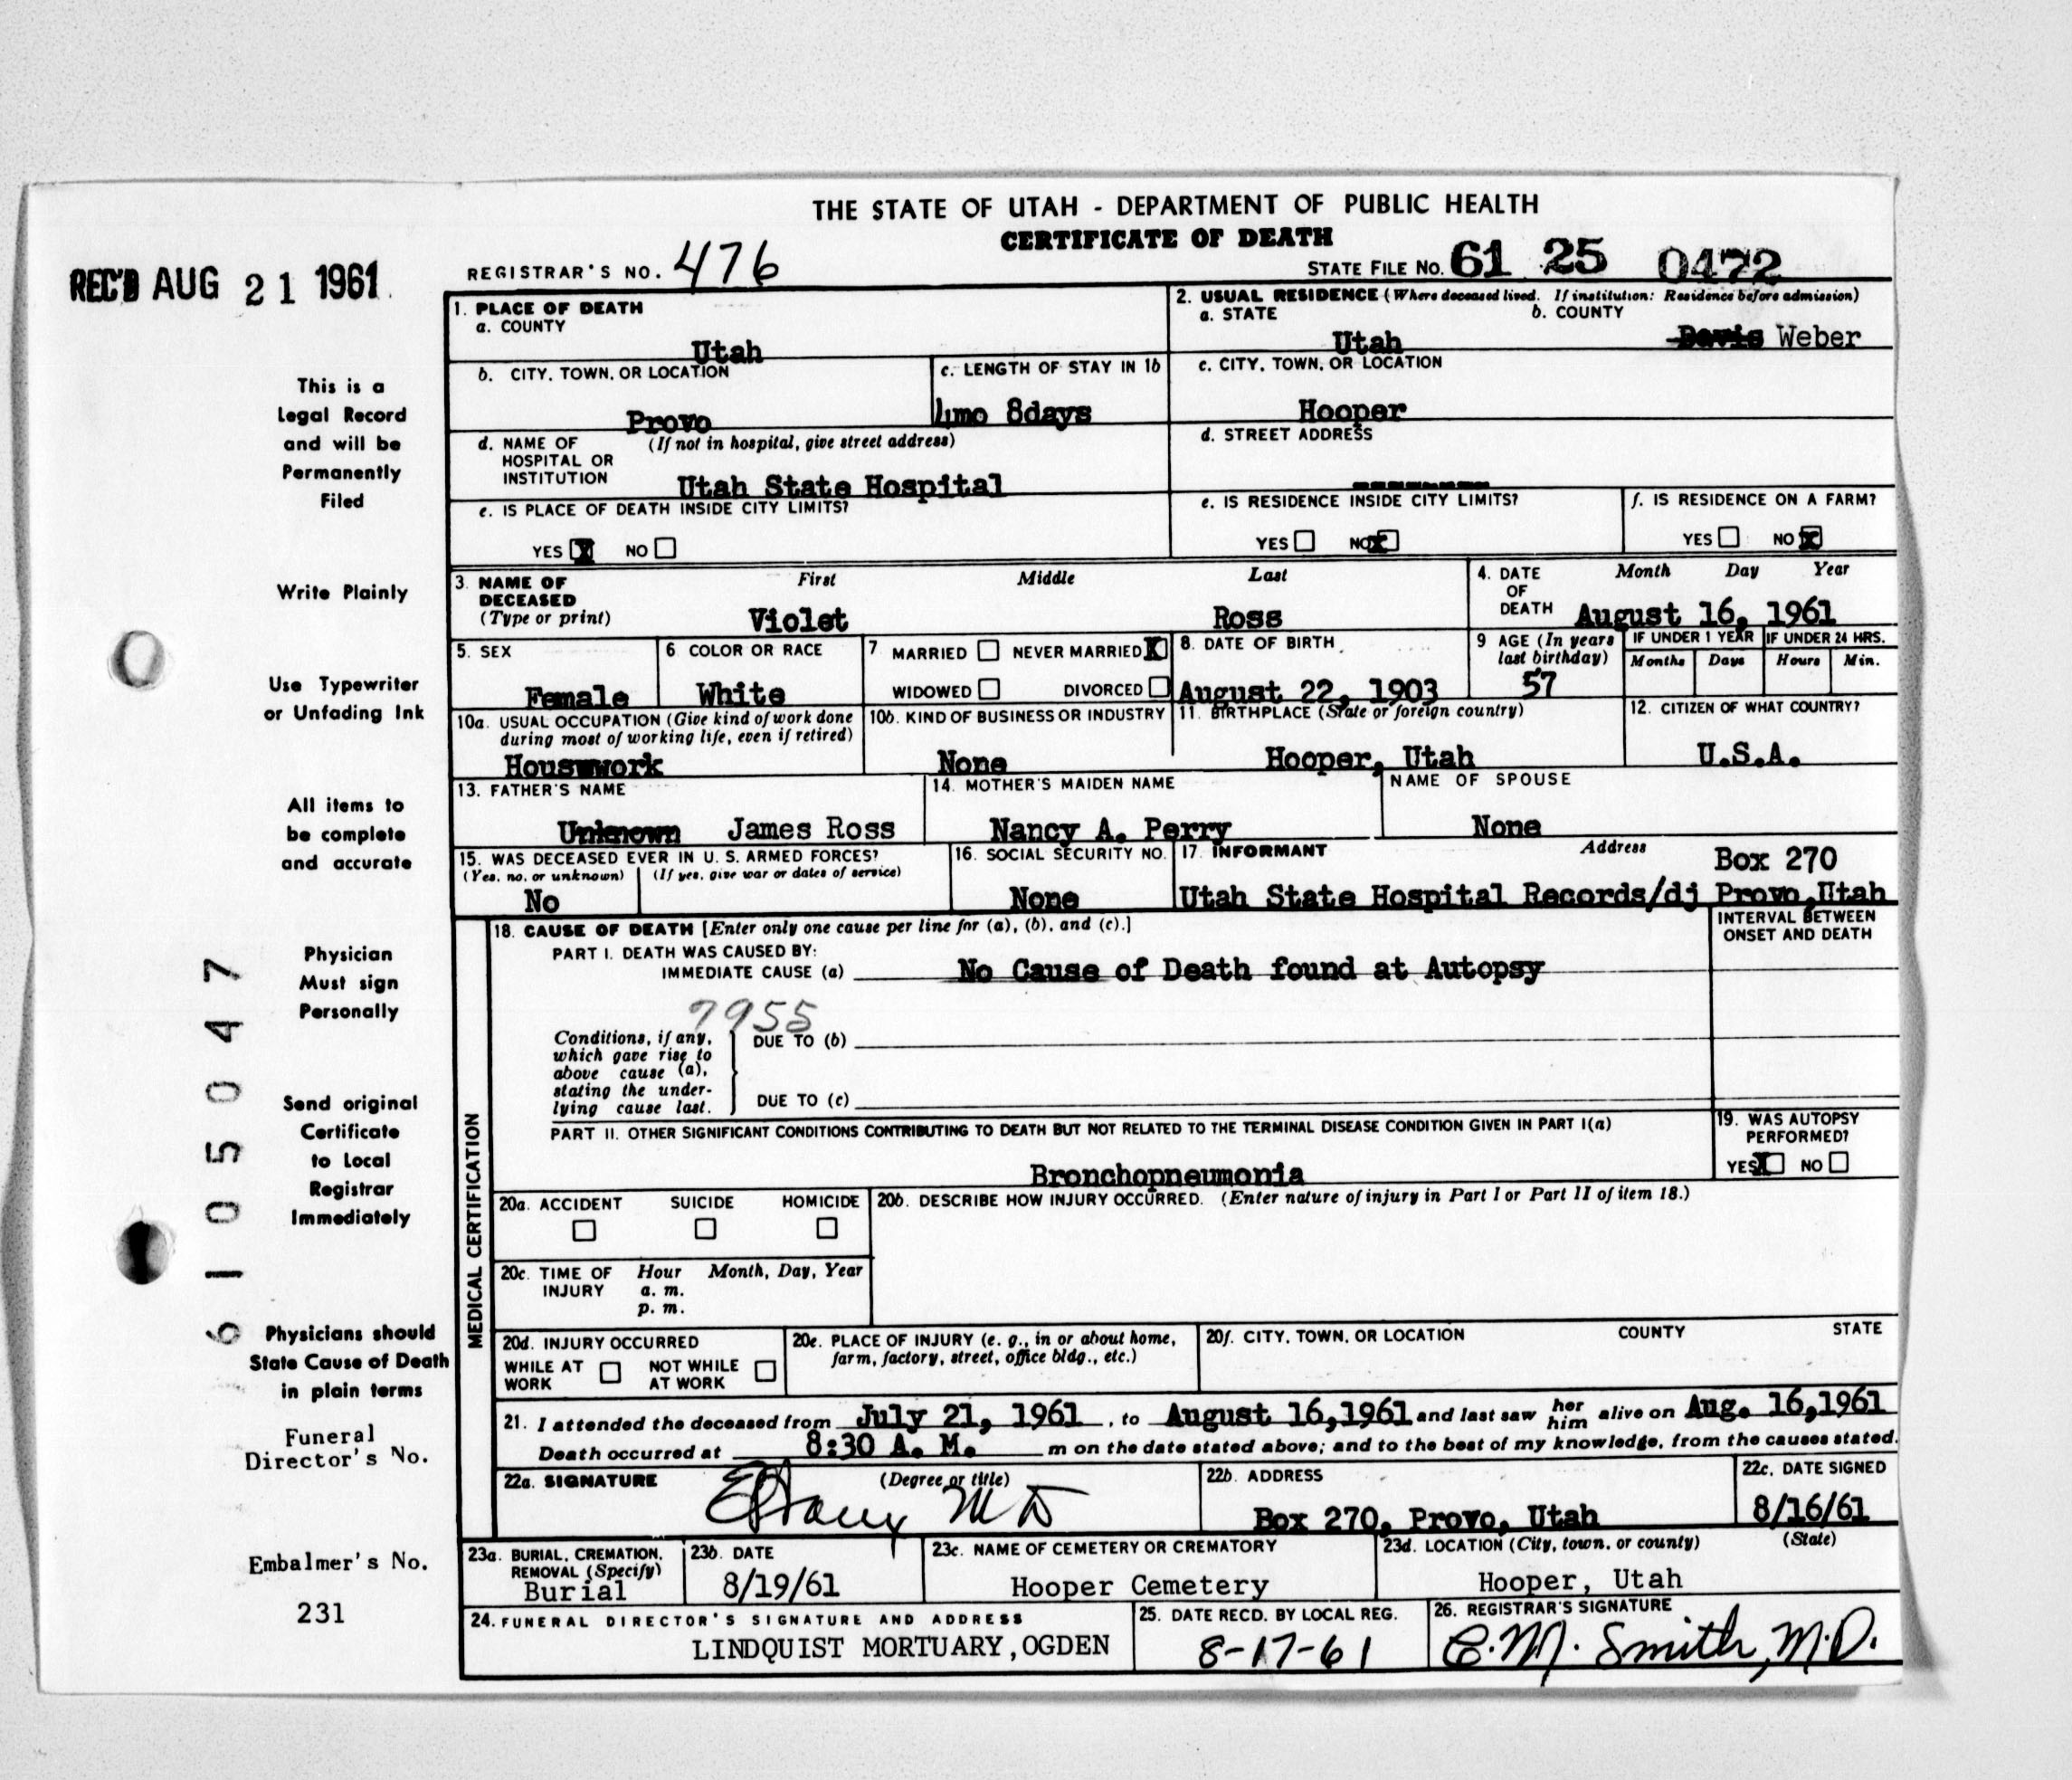 THE STATE OF UTAH - DEPARTMENT OF PUBLIC HEALTH
CERTIFICATE OF DEATH
REC'D AUG 21 1961
REGISTRAR'S NO. 476
STATE FILE NO. 61 25 0472
1. PLACE OF DEATH
a. COUNTY
Utah
2. USUAL RESIDENCE (Where deceased lived. If institution: Residence before admission)
a. STATE b. COUNTY
Utah Davis Weber
b. CITY, TOWN, OR LOCATION
Provo
c. LENGTH OF STAY IN 1b
4mo 8days
c. CITY, TOWN, OR LOCATION
Hooper
d. NAME OF (If not in hospital, give street address)
HOSPITAL OR
INSTITUTION Utah State Hospital
d. STREET ADDRESS
--------
e. IS PLACE OF DEATH INSIDE CITY LIMITS?
YES X NO
e. IS RESIDENCE INSIDE CITY LIMITS?
YES NO X
f. IS RESIDENCE ON A FARM?
YES NO X
3. NAME OF First Middle Last
DECEASED
(Type or print) Violet Ross
4. DATE Month Day Year
OF
DEATH August 16, 1961
5. SEX
Female
6 COLOR OR RACE
White
7 MARRIED NEVER MARRIED X
WIDOWED DIVORCED
8. DATE OF BIRTH
August 22, 1903
9 AGE (In years
last birthday)
57
IF UNDER 1 YEAR IF UNDER 24 HRS.
Months Days Hours Min.
10a. USUAL OCCUPATION (Give kind of work done
during most of working life, even if retired)
Housework
10b. KIND OF BUSINESS OR INDUSTRY
None
11. BIRTHPLACE (State or foreign country)
Hooper, Utah
12. CITIZEN OF WHAT COUNTRY?
U.S.A.
13. FATHER'S NAME
Unknown James Ross
14. MOTHER'S MAIDEN NAME
Nancy A. Perry
NAME OF SPOUSE
None
15. WAS DECEASED EVER IN U. S. ARMED FORCES?
(Yes, no, or unknown) (If yes, give war or dates of service)
No
16. SOCIAL SECURITY NO.
None
17. INFORMANT Address Box 270
Utah State Hospital Records/dj Provo,Utah
MEDICAL CERTIFICATION
18. CAUSE OF DEATH [Enter only one cause per line for (a), (b), and (c).]
INTERVAL BETWEEN
ONSET AND DEATH
PART I. DEATH WAS CAUSED BY:
IMMEDIATE CAUSE (a) No Cause of Death found at Autopsy
7955
Conditions, if any,
which gave rise to
above cause (a),
stating the under-
lying cause last.
DUE TO (b)
DUE TO (c)
PART II. OTHER SIGNIFICANT CONDITIONS CONTRIBUTING TO DEATH BUT NOT RELATED TO THE TERMINAL DISEASE CONDITION GIVEN IN PART I(a)
Bronchopneumonia
19. WAS AUTOPSY
PERFORMED?
YES X NO
20a. ACCIDENT SUICIDE HOMICIDE
20b. DESCRIBE HOW INJURY OCCURRED. (Enter nature of injury in Part I or Part II of item 18.)
20c. TIME OF Hour Month, Day, Year
INJURY a. m.
p. m.
20d. INJURY OCCURRED
WHILE AT NOT WHILE
WORK AT WORK
20e. PLACE OF INJURY (e. g., in or about home,
farm, factory, street, office bldg., etc.)
20f. CITY, TOWN, OR LOCATION COUNTY STATE
21. I attended the deceased from July 21, 1961, to August 16,1961 and last saw her him alive on Aug. 16,1961
Death occurred at 8:30 A. M. m on the date stated above; and to the best of my knowledge, from the causes stated.
22a. SIGNATURE (Degree or title)
MD
22b. ADDRESS
Box 270, Provo, Utah
22c. DATE SIGNED
8/16/61
23a. BURIAL, CREMATION,
REMOVAL (Specify)
Burial
23b. DATE
8/19/61
23c. NAME OF CEMETERY OR CREMATORY
Hooper Cemetery
23d. LOCATION (City, town, or county) (State)
Hooper, Utah
24. FUNERAL DIRECTOR'S SIGNATURE AND ADDRESS
LINDQUIST MORTUARY,OGDEN
25. DATE RECD. BY LOCAL REG.
8-17-61
26. REGISTRAR'S SIGNATURE
C. M. Smith, M.D.
This is a
Legal Record
and will be
Permanently
Filed
Write Plainly
Use Typewriter
or Unfading Ink
All items to
be complete
and accurate
Physician
Must sign
Personally
Send original
Certificate
to Local
Registrar
Immediately
Physicians should
State Cause of Death
in plain terms
Funeral
Director's No.
Embalmer's No.
231
6105047